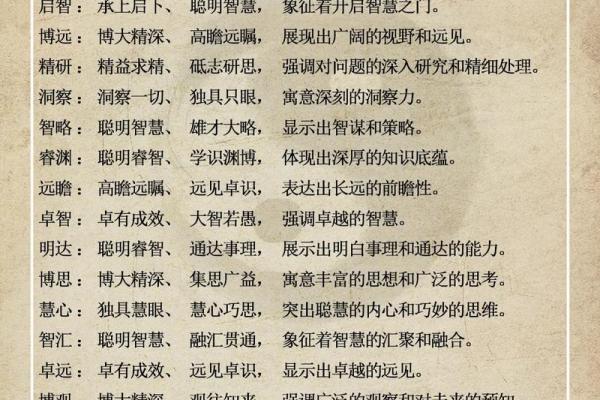 启智：承上启下、聪明智慧，象征着开启智慧之门。
博远：博大精深、高瞻远瞩，展现出广阔的视野和远见。
精研：精益求精、砥志研思，强调对问题的深入研究和精细处理。
洞察：洞察一切、独具只眼，寓意深刻的洞察力。
智略：聪明智慧、雄才大略，显示出智谋和策略。
睿渊：聪明睿智、学识渊博，体现出深厚的知识底蕴。
远瞻：高瞻远瞩、远见卓识，表达出长远的前瞻性。
卓智：卓有成效、大智若愚，强调卓越的智慧。
明达：聪明睿智、通达事理，展示出明白事理和通达的能力。
博思：博大精深、集思广益，寓意丰富的思想和广泛的思考。
慧心：独具慧眼、慧心巧思，突出聪慧的内心和巧妙的思维。
智汇：聪明智慧、融汇贯通，象征着智慧的汇聚和融合。
卓远：卓有成效、远见卓识，显示出卓越的远见。
博观：博大精深、观往知来，强调广泛的观察和对未来的预知。